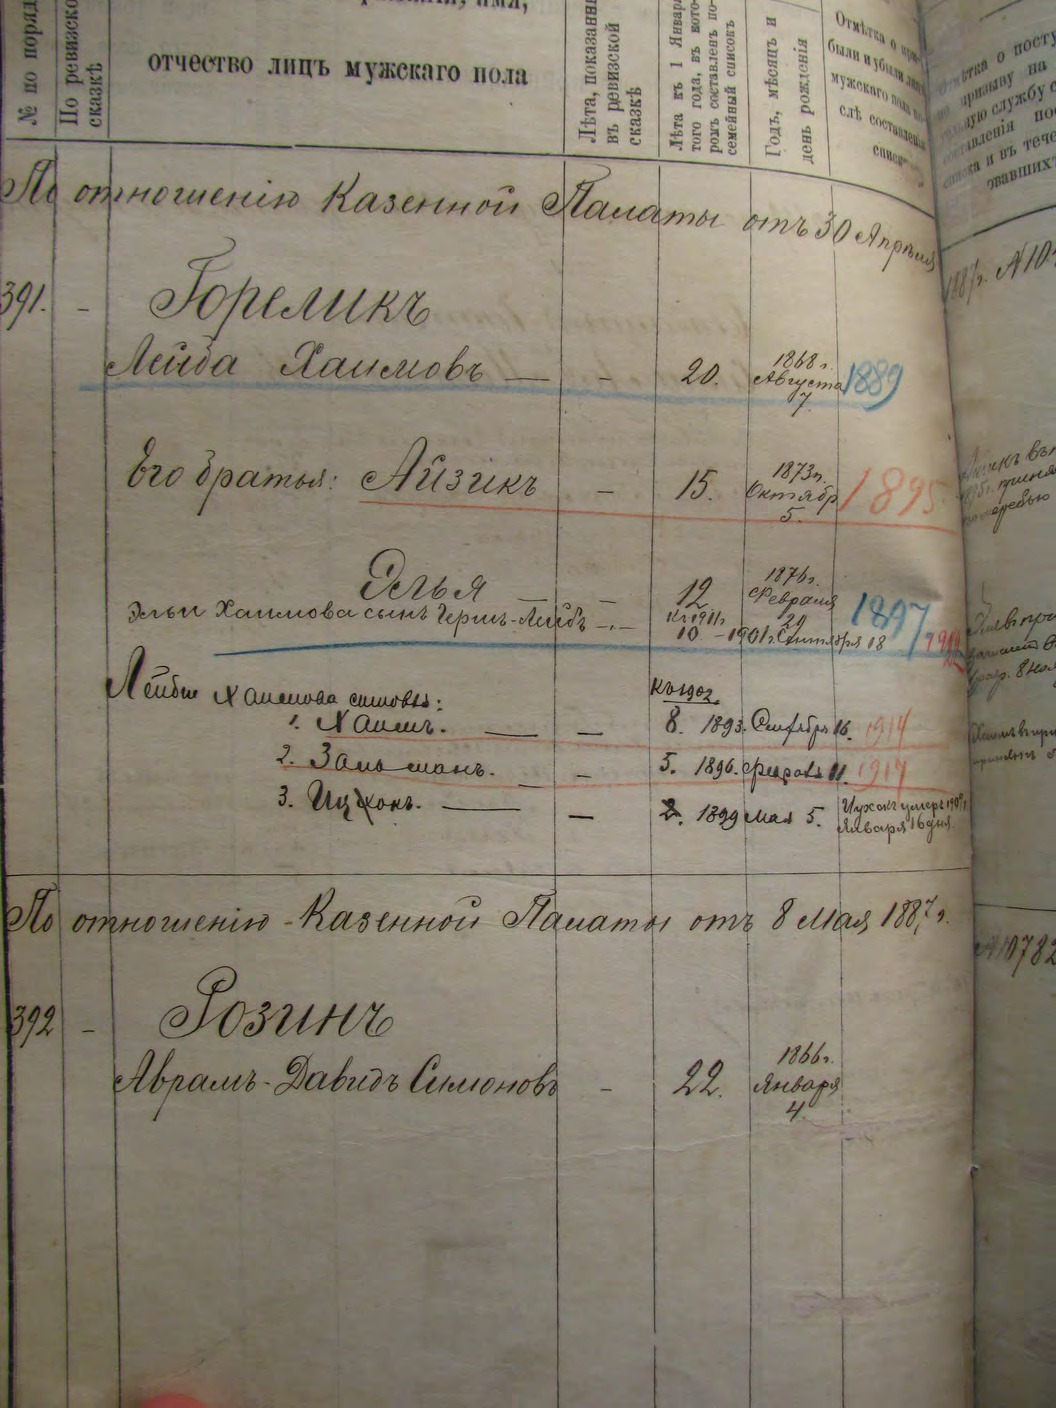 № по поряд
По ревизско
сказкѣ
имя,
отчество лицъ мужскаго пола
Лѣта, показанны
въ ревизской
сказкѣ
Лѣта къ 1 Январ
того года, въ кото-
ромъ составленъ по-
семейный списокъ
Годъ, мѣсяцъ и
день рожденія
Отмѣтка о при-
были и убыли лицъ
мужскаго пола по-
слѣ составленія
списка
тка о посту
призыву на
службу с
ставленія по
списка и въ тече
звавшихъ
По отношенію Казенной Палаты отъ 30 Апрѣля
1887г. № 10
391. -
Гореликъ
Лейба Хаимовъ — - 20. 1868 г. Августа 7. 1889
Его братья: Айзикъ - 15. 1873 г. Октября 5. 1895
Элья — - 12 1876 г. Февраля 29 1897
Эльи Хаимова сынъ Герш-Лейбъ -.- къ 1911 г. 10 - 1901 г. Сентября 18
Лейбы Хаимова сыновья: къ 1902.
1. Хаимъ. — - 8. 1893. Сентября 16. 1914
2. Зальманъ. - 5. 1896. Февраля 11. 1917
3. Ицхокъ. — - 2. 1899 Мая 5. Ицхокъ умеръ
Января 16 дня.
По отношенію - Казенной Палаты отъ 8 Мая 1887 г.
№ 10782
392 -
Розинъ
Аврамъ-Давидъ Симоновъ - 22. 1866 г. Января 4.